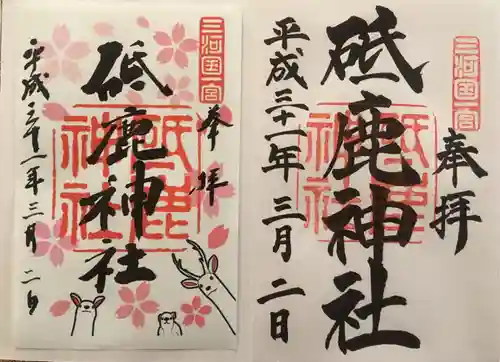 三河国一宮
奉拝
砥鹿神社
砥鹿神社
平成三十一年三月二日
三河国一宮
奉拝
砥鹿神社
砥鹿神社
平成三十一年三月二日